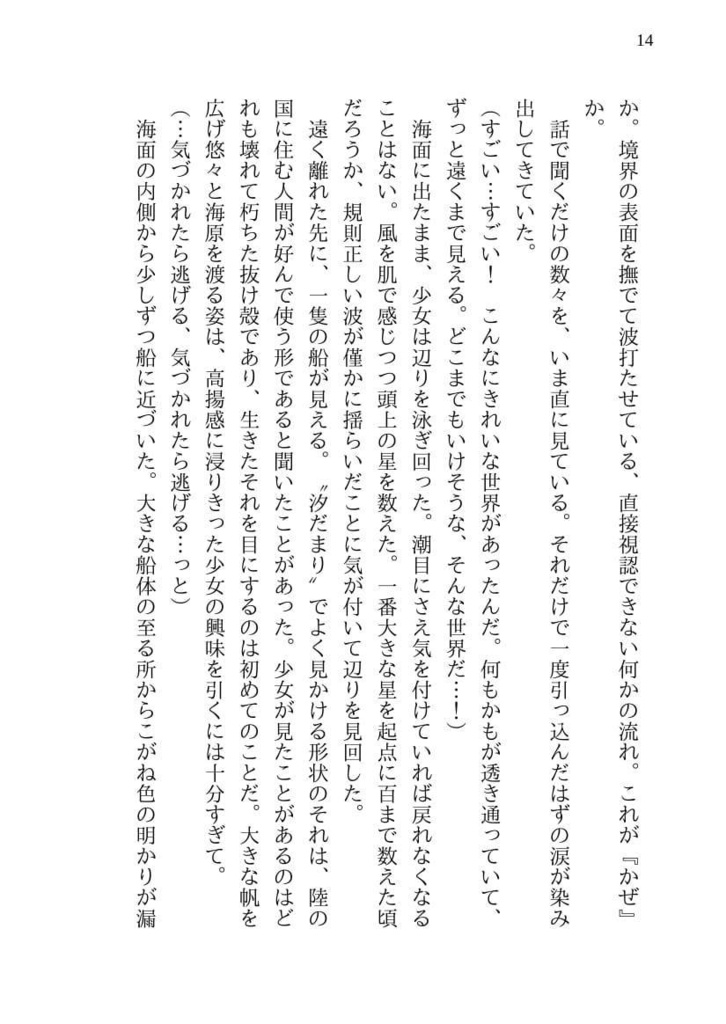 14
か。境界の表面を撫でて波打たせている、直接視認できない何かの流れ。これが『かぜ』
か。
　話で聞くだけの数々を、いま直に見ている。それだけで一度引っ込んだはずの涙が染み
出してきていた。
（すごい…すごい！　こんなにきれいな世界があったんだ。何もかもが透き通っていて、
ずっと遠くまで見える。どこまでもいけそうな、そんな世界だ…！）
　海面に出たまま、少女は辺りを泳ぎ回った。潮目にさえ気を付けていれば戻れなくなる
ことはない。風を肌で感じつつ頭上の星を数えた。一番大きな星を起点に百まで数えた頃
だろうか、規則正しい波が僅かに揺らいだことに気が付いて辺りを見回した。
　遠く離れた先に、一隻の船が見える。〝汐だまり〟でよく見かける形状のそれは、陸の
国に住む人間が好んで使う形であると聞いたことがあった。少女が見たことがあるのはど
れも壊れて朽ちた抜け殻であり、生きたそれを目にするのは初めてのことだ。大きな帆を
広げ悠々と海原を渡る姿は、高揚感に浸りきった少女の興味を引くには十分すぎて。
（…気づかれたら逃げる、気づかれたら逃げる…っと）
　海面の内側から少しずつ船に近づいた。大きな船体の至る所からこがね色の明かりが漏